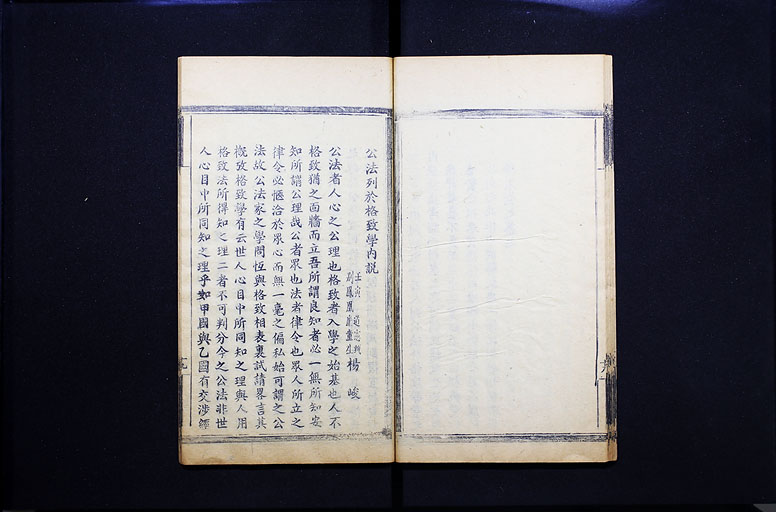 公法列於格致學內説
壬寅 道
別鳳凰 童生 楊峻
公法者人心之公理也格致者入學之始基也人不
格致猶之面牆而立吾所謂良知者必一無所知安
知所謂公理哉公者眾也法者律令也眾人所立之
律令必愜洽於眾心而無一毫之偏私始可謂之公
法故公法家之學問恆與格致相表裏試請畧言其
概攷格致學有云世人心目中所同知之理與人用
格致法所得知之理二者不可判分今之公法非世
人心目中所同知之理乎如甲國與乙國有交涉